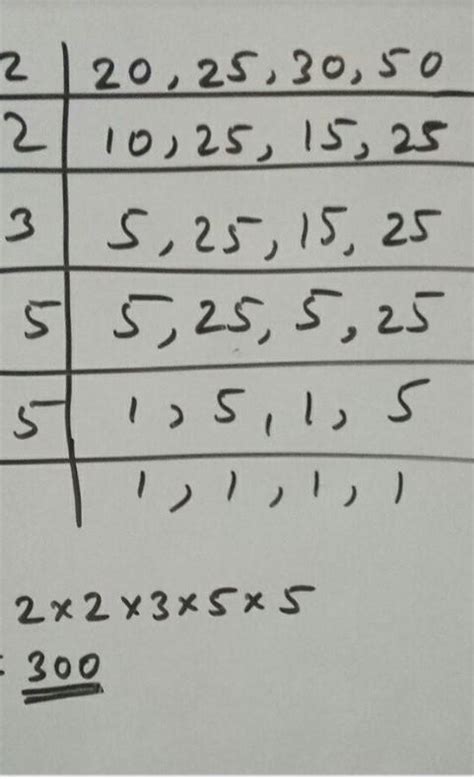 2 | 20, 25, 30, 50
2 | 10, 25, 15, 25
3 | 5, 25, 15, 25
5 | 5, 25, 5, 25
5 | 1, 5, 1, 5
1, 1, 1, 1
2×2×3×5×5
= 300